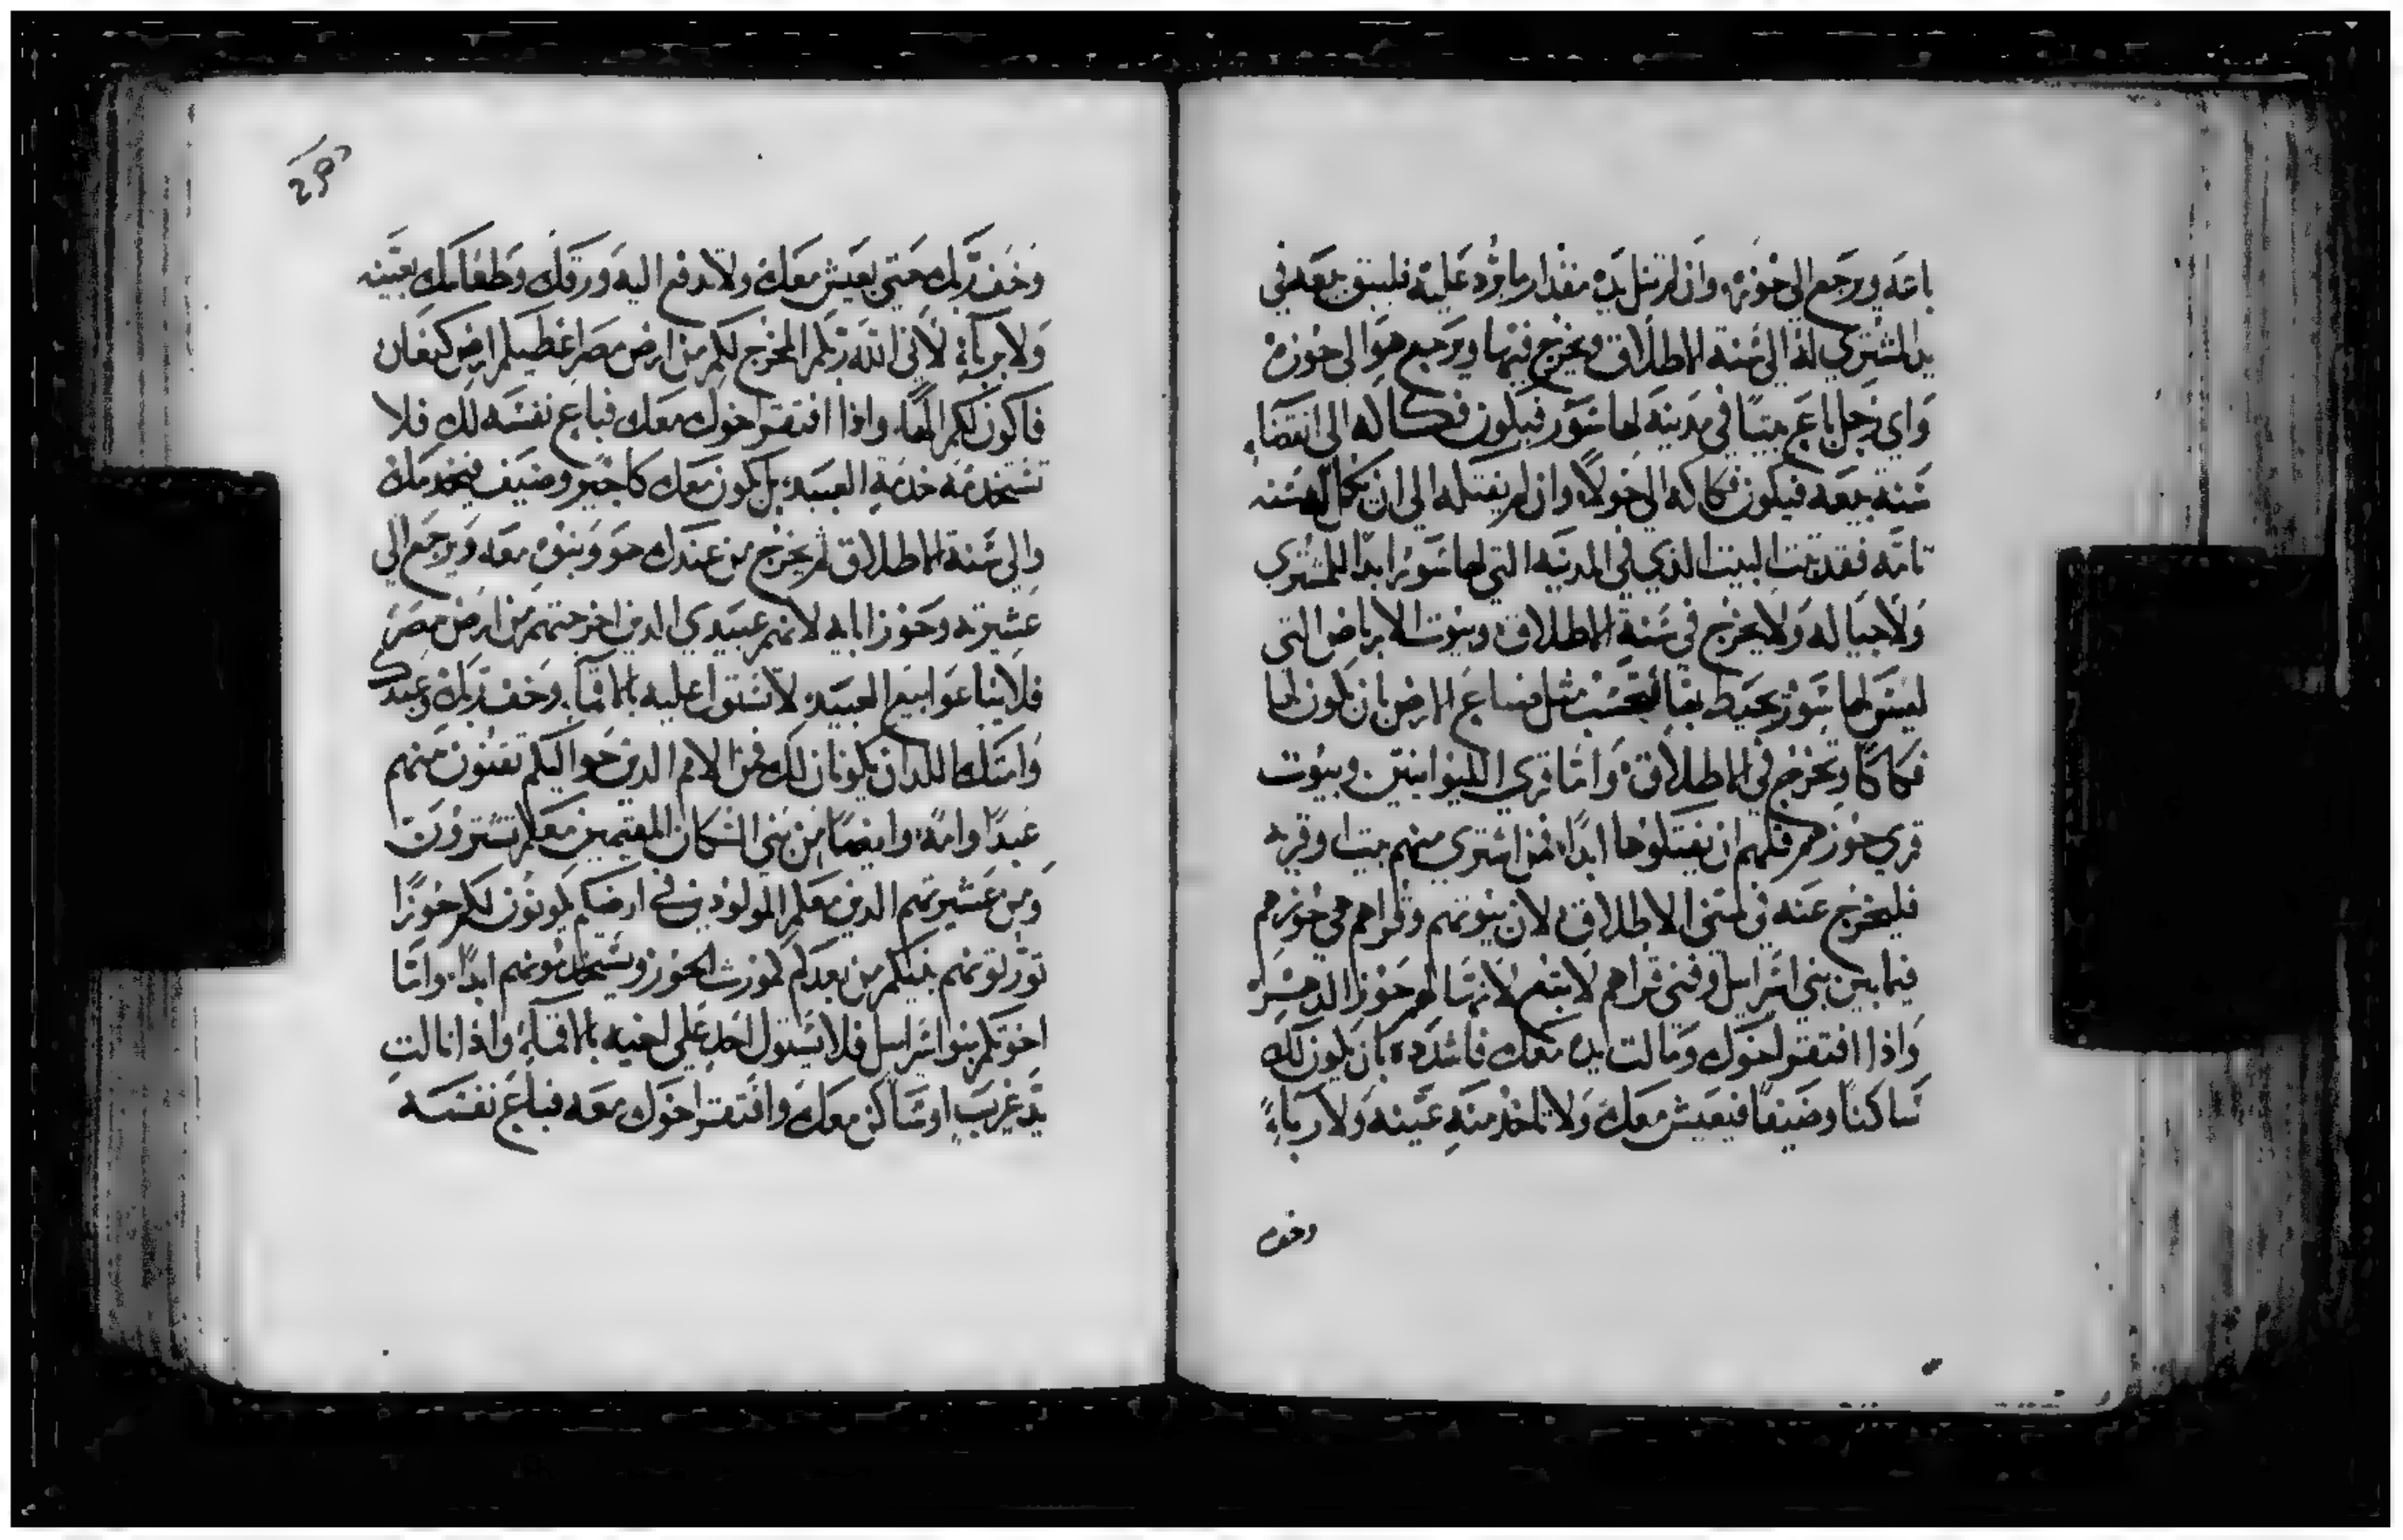 باعه ويرجع الى حوزه وان لم تنل يده مقدار ما يرد عليه فليبق بيعه في
يد المشتري له الى سنة الاطلاق ويخرج فيها ويرجع هو الى حوزه
واي رجل باع بيتا في مدينه لها سور فيكون فكاكه الى انقضاء
سنة بيعه فيكون فكاكه الى حولا وان لم يفتكه الى ان تكمل له سنه
تامه فقد ثبت البيت الذي في المدينه التي لها سور ابدا للمشتري
ولاجياله ولا يخرج في سنة الاطلاق وبيوت الارباض التي
ليس لها سور يحيط بها تحسب مثل ضياع الارض بان يكون لها
فكاكا وتخرج في الاطلاق واما قري الليوانيين وبيوت
قري حوزهم فلهم ان يفتكوها ابدا فمن اشتري منهم بيت او قريه
فليخرج عنه في الاطلاق لان بيوتهم وقراهم هي حوزهم
فيما بين بني اسراييل وفنى قراهم لا يتبع لانها لهم حوز الدهر
واذا افتقر اخوك ومالت يده معك فاشدده بان يكون لك
ساكنا وضيفا فيعيش معك ولا تاخذ منه عينه ولا رباء
وخف
وخف ربك حتى يعيش معك ولا تدفع اليه ورقك وطعامك بعينه
ولا برباء لاني الله ربكم المخرج لكم من ارض مصر اعطيكم ارض كنعان
فاكون لكم الها واذا افتقر اخوك معك فباع نفسه لك فلا
تستخدمه خدمة العبيد بل يكون معك كاجير وضيف فيخدمك
والى سنة الاطلاق ثم يخرج من عندك هو وبنوه معه ويرجع الى
عشيرته وحوز ابايه لانهم عبيدي الدين اخرجتهم من ارض مصر
فلا يباعوا بيع العبيد لا تستولي عليه بالاقسا وخف ربك وعبدك
وامتك اللدان يكونان لك فمن الامم الدين حواليكم تقنون منهم
عبدا وامة وايضا من بني السكان المقيمين معكم تشترون
ومن عشيرتهم الدين معكم المولودين في ارضكم يكونون لكم حوزا
تورثونهم بنيكم من بعدكم كمورث الحوز وتستخدمونهم ابدا واما
اخوتكم بنو اسراييل فلا يستول احد على اخيه بالاقساء واذا نالت
يد غريب او ساكن معك وافتقر اخوك معه فباع نفسه